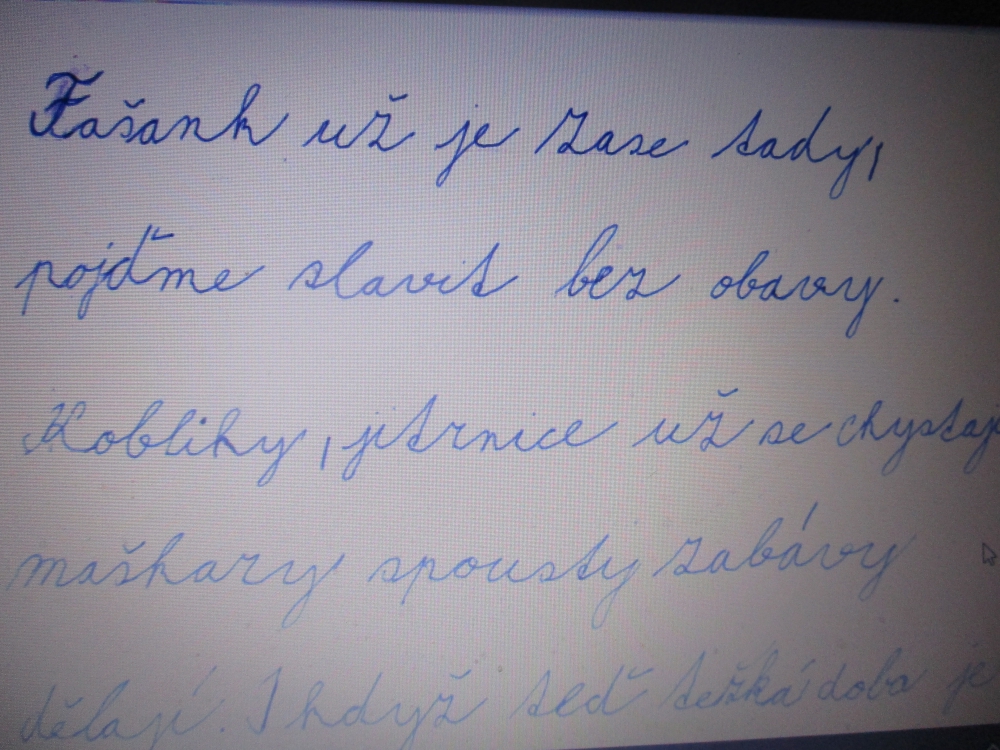 Fašank už je zase tady,
pojďme slavit bez obavy.
Koblihy, jitrnice už se chystaj
maškary spousty zabávy
dělají. I když teď težká doba je